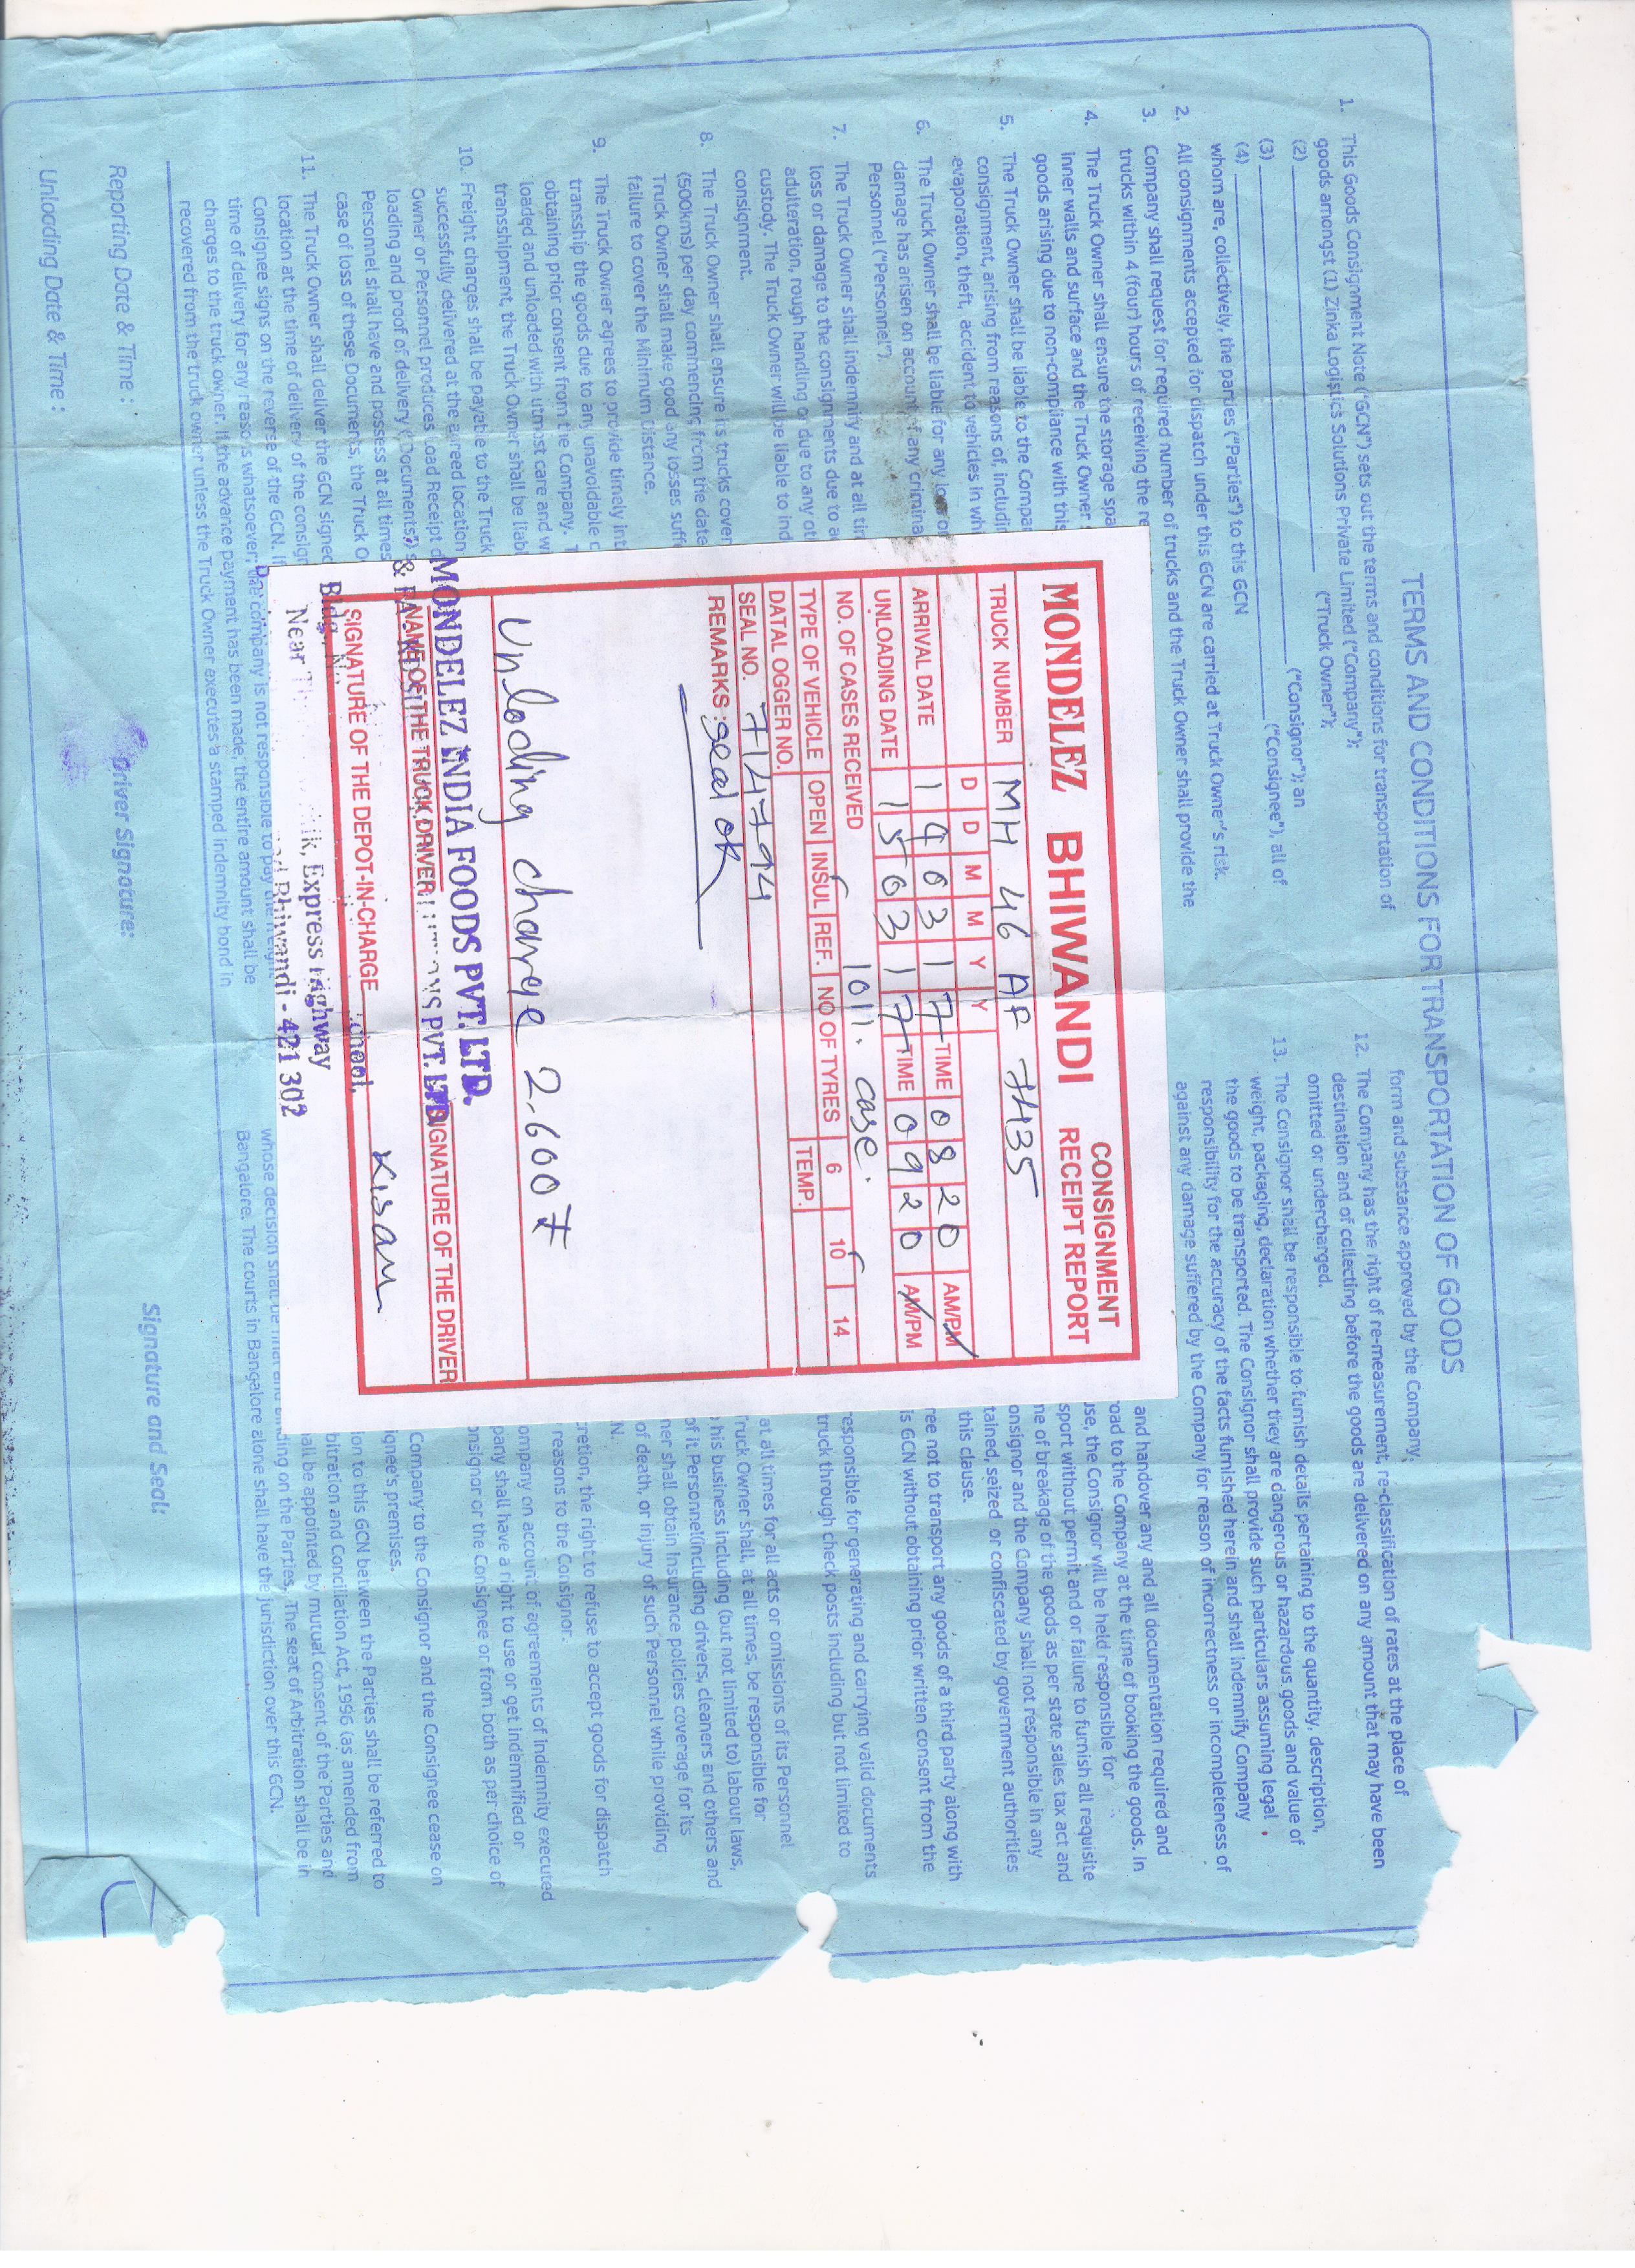 TERMS AND CONDITIONS FOR TRANSPORTATION OF GOODS
1. This Goods Consignment Note ("GCN") sets out the terms and conditions for transportation of
goods amongst (1) Zinka Logistics Solutions Private Limited ("Company");
(2) ("Truck Owner");
(3) ("Consignor"); an
(4) ("Consignee"), all of
whom are, collectively, the parties ("Parties") to this GCN
2. All consignments accepted for dispatch under this GCN are carried at Truck Owner's risk.
3. Company shall request for required number of trucks and the Truck Owner shall provide the
trucks within 4 (four) hours of receiving the re
4. The Truck Owner shall ensure the storage spa
inner walls and surface and the Truck Owner
goods arising due to non-compliance with this
5. The Truck Owner shall be liable to the Compa
consignment, arising from reasons of, includin
evaporation, theft, accident to vehicles in wh
6. The Truck Owner shall be liable for any loss or
damage has arisen on account of any crimina
Personnel ("Personnel").
7. The Truck Owner shall indemnify and at all tim
loss or damage to the consignments due to a
adulteration, rough handling or due to any ot
custody. The Truck Owner will be liable to ind
consignment.
8. The Truck Owner shall ensure its trucks cover
(500kms) per day commencing from the date
Truck Owner shall make good any losses suff
failure to cover the Minimum Distance.
9. The Truck Owner agrees to provide timely int
transship the goods due to any unavoidable c
obtaining prior consent from the Company. T
loaded and unloaded with utmost care and w
transshipment, the Truck Owner shall be liab
10. Freight charges shall be payable to the Truck
successfully delivered at the agreed location
Owner or Personnel produces Load Receipt d
loading and proof of delivery ("Documents") s
Personnel shall have and possess at all times
case of loss of these Documents, the Truck O
11. The Truck Owner shall deliver the GCN signed
location at the time of delivery of the consign
Consignee signs on the reverse of the GCN. If
time of delivery for any reasons whatsoever, the company is not responsible to pay the
charges to the truck owner. If the advance payment has been made, the entire amount shall be
recovered from the truck owner unless the Truck Owner executes a stamped indemnity bond in
form and substance approved by the Company.
12. The Company has the right of re-measurement, re-classification of rates at the place of
destination and of collecting before the goods are delivered on any amount that may have been
omitted or undercharged.
13. The Consignor shall be responsible to furnish details pertaining to the quantity, description,
weight, packaging, declaration whether they are dangerous or hazardous goods and value of
the goods to be transported. The Consignor shall provide such particulars assuming legal
responsibility for the accuracy of the facts furnished herein and shall indemnify Company
against any damage suffered by the Company for reason of incorrectness or incompleteness of
and handover any and all documentation required and
oad to the Company at the time of booking the goods. In
use, the Consignor will be held responsible for
sport without permit and or failure to furnish all requisite
ne of breakage of the goods as per state sales tax act and
onsignor and the Company shall not responsible in any
tained, seized or confiscated by government authorities
this clause.
ree not to transport any goods of a third party along with
is GCN without obtaining prior written consent from the
responsible for generating and carrying valid documents
truck through check posts including but not limited to
at all times for all acts or omissions of its Personnel
Truck Owner shall, at all times, be responsible for
his business including (but not limited to) labour laws,
of it Personnel(including drivers, cleaners and others and
ner shall obtain Insurance policies coverage for its
of death, or injury of such Personnel while providing
N.
cretion, the right to refuse to accept goods for dispatch
reasons to the Consignor.
ompany on account of agreements of indemnity executed
pany shall have a right to use or get indemnified or
onsignor or the Consignee or from both as per choice of
Company to the Consignor and the Consignee cease on
ignee's premises.
ion to this GCN between the Parties shall be referred to
bitration and Conciliation Act, 1996 (as amended from
all be appointed by mutual consent of the Parties and
ding on the Parties, The seat of Arbitration shall be in
Bangalore. The courts in Bangalore alone shall have the jurisdiction over this GCN.
Reporting Date & Time :
Unloading Date & Time :
Driver Signature:
Signature and Seal:
MONDELEZ BHIWANDI CONSIGNMENT RECEIPT REPORT
TRUCK NUMBER MH 46 AF 7435
D D M M Y Y
ARRIVAL DATE 14 03 17 TIME 08 20 AM/PM
UNLOADING DATE 15 03 17 TIME 09 20 AM/PM
NO. OF CASES RECEIVED 1011. case.
TYPE OF VEHICLE OPEN INSUL REF. NO OF TYRES 6 10 14
DATAL OGGER NO. TEMP.
SEAL NO. 714794
REMARKS : seal ok
Unloding charge 2.600
MONDELEZ INDIA FOODS PVT. LTD.
NAME OF THE TRUCK DRIVER SIGNATURE OF THE DRIVER
PVT. LTD
SIGNATURE OF THE DEPOT-IN-CHARGE Kisan
Bldg. No
Near Express Highway
Bhiwandi - 421 302